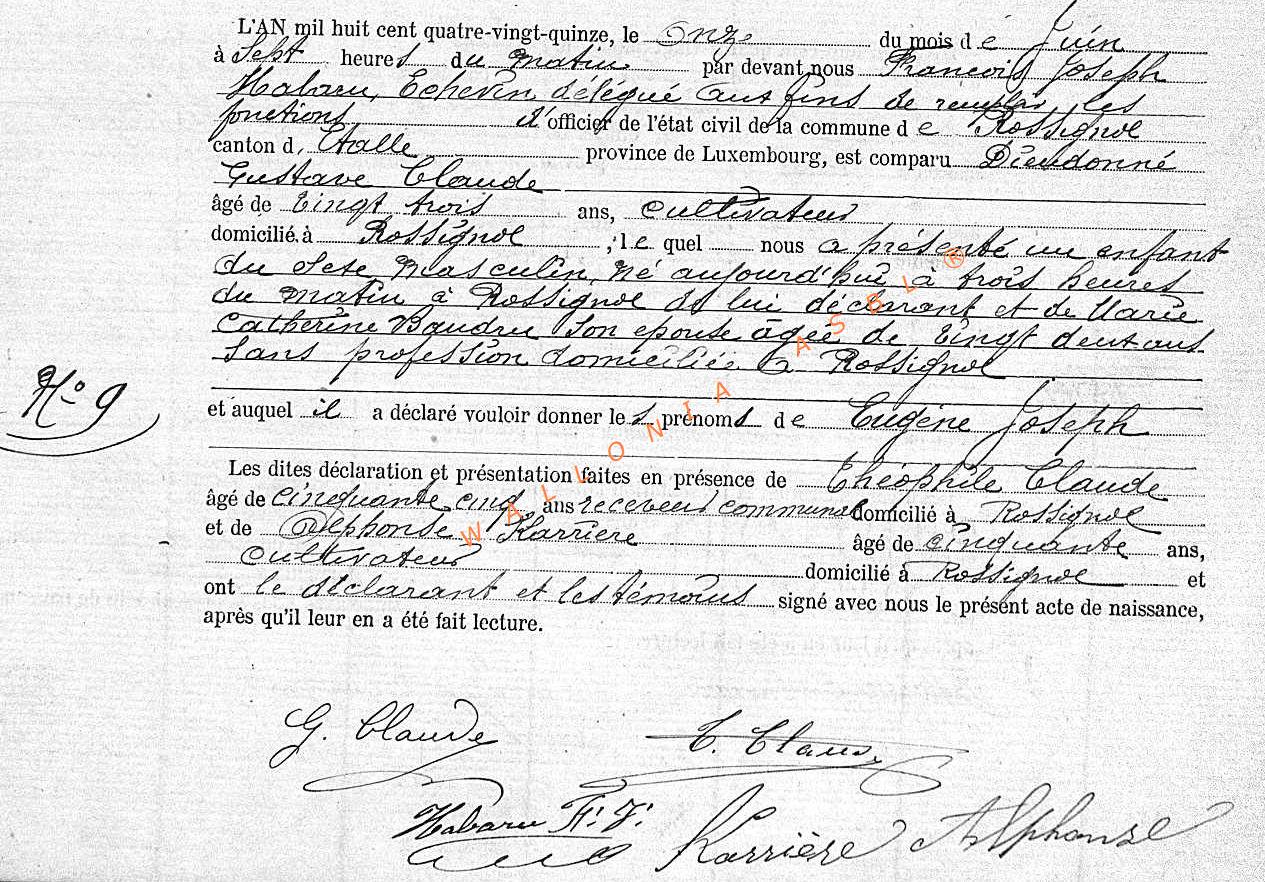 L'AN mil huit cent quatre-vingt-quinze, le Onze du mois de Juin
à Sept heures du matin par devant nous François Joseph
Habaru, Echevin délégué aux fins de remplir les
fonctions d'officier de l'état civil de la commune de Rossignol
canton d'Etalle province de Luxembourg, est comparu Dieudonné
Gustave Claude
âgé de Vingt trois ans, cultivateur
domicilié à Rossignol ; le quel nous a présenté un enfant
du sexe masculin, né aujourd'hui à trois heures
du matin à Rossignol de lui déclarant et de Marie
Catherine Baudru son epouse âgée de Vingt deux ans
sans profession domiciliée à Rossignol
N° 9
et auquel il a déclaré vouloir donner les prénoms de Eugène Joseph
Les dites déclaration et présentation faites en présence de Théophile Claude
âgé de cinquante cinq ans receveur communal domicilié à Rossignol
et de Alphonse Karrière âgé de cinquante ans,
cultivateur domicilié à Rossignol et
ont le déclarant et les témoins signé avec nous le présent acte de naissance,
après qu'il leur en a été fait lecture.
WALLONIA ASBL ®
G. Claude T. Claude
Habaru F. J. Karrière Alphonse